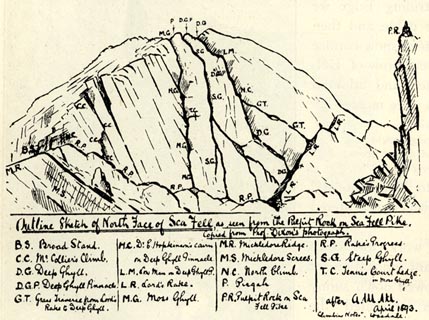 P D.G.P D.G
M.G. S.G. L.M. P.R.
D.G.P
C.C. M.C. G.T.
C.C. T.C. G.T.
B.S. N.C. C.C. M.G. S.G. D.G. L.R.
M.R. R.P. C.C. S.G. D.G.
R.P. M.G.
M.S. R.P. R.P.
Outline Sketch of North Face of Sca Fell as seen from the Pulpit Rock on Sca Fell Pike.
Copied from Prof. Dixon's photograph.
B.S. Broad Stand.
C.C. Mr Collier's Climb.
D.G. Deep Ghyll.
D.G.P. Deep Ghyll Pinnacle
G.T. Great Traverse from Lord's
Rake to Deep Ghyll.
H.C. Dr E Hopkinson's cairn
on Deep Ghyll Pinnacle
L.M. Low Man on Deep Ghyll P.
L.R. Lord's Rake.
M.G. Moss Ghyll.
M.R. Mickledore Ridge.
M.S. Mickledore Screes.
N.C. North Climb.
P. Pisgah
P.R. Pulpit Rock on Sca
Fell Pike
R.P. Rake's Progress.
S.G. Steep Ghyll.
T.C. Tennis Court Ledge.
in Moss Ghyll
after A.M.M.
April 1893.
Climbers' Notes. Wasdale